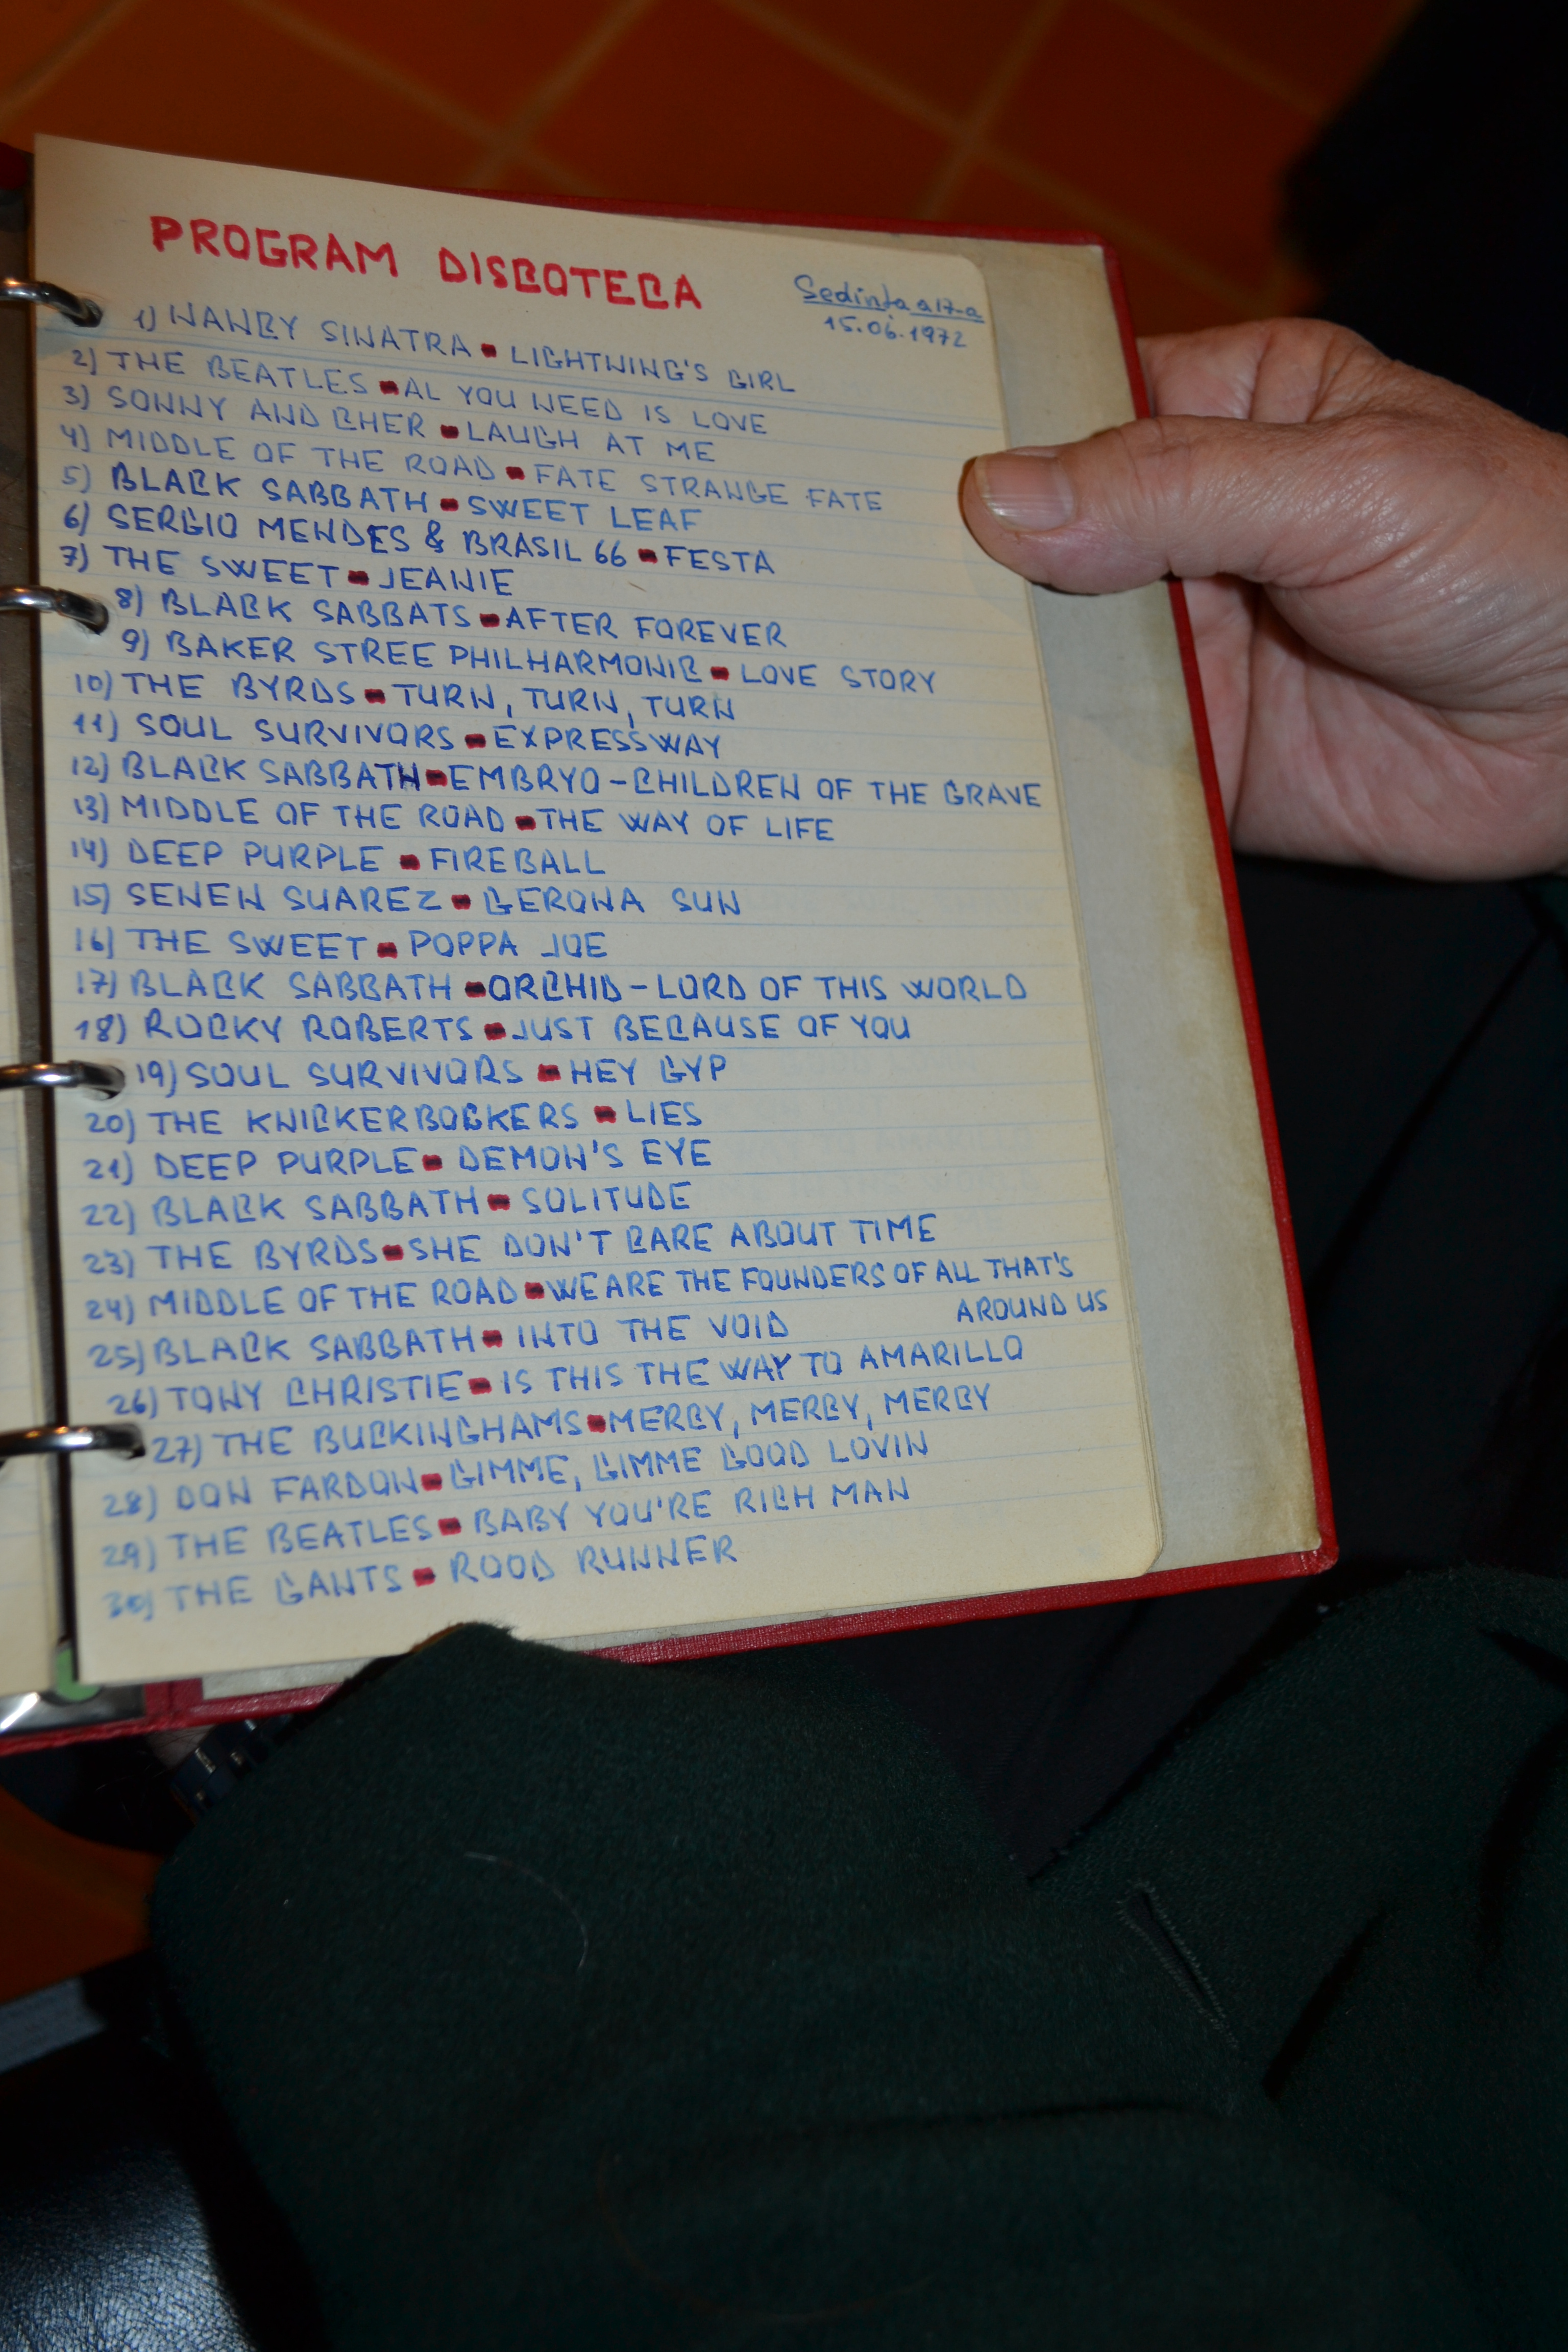 PROGRAM DISCOTECA
Sedinţa a 17-a
15.06.1972
1) NANCY SINATRA - LIGHTNING'S GIRL
2) THE BEATLES - AL YOU NEED IS LOVE
3) SONNY AND CHER - LAUGH AT ME
4) MIDDLE OF THE ROAD - FATE STRANGE FATE
5) BLACK SABBATH - SWEET LEAF
6) SERGIO MENDES & BRASIL 66 - FESTA
7) THE SWEET - JEANIE
8) BLACK SABBATS - AFTER FOREVER
9) BAKER STREE PHILHARMONIC - LOVE STORY
10) THE BYRDS - TURN, TURN, TURN
11) SOUL SURVIVORS - EXPRESSWAY
12) BLACK SABBATH - EMBRYO - CHILDREN OF THE GRAVE
13) MIDDLE OF THE ROAD - THE WAY OF LIFE
14) DEEP PURPLE - FIREBALL
15) SENEN SUAREZ - GERONA SUN
16) THE SWEET - POPPA JOE
17) BLACK SABBATH - ORCHID - LORD OF THIS WORLD
18) ROCKY ROBERTS - JUST BECAUSE OF YOU
19) SOUL SURVIVORS - HEY GYP
20) THE KNICKERBOCKERS - LIES
21) DEEP PURPLE - DEMON'S EYE
22) BLACK SABBATH - SOLITUDE
23) THE BYRDS - SHE DON'T CARE ABOUT TIME
24) MIDDLE OF THE ROAD - WE ARE THE FOUNDERS OF ALL THAT'S
AROUND US
25) BLACK SABBATH - INTO THE VOID
26) TONY CHRISTIE - IS THIS THE WAY TO AMARILLO
27) THE BUCKINGHAMS - MERCY, MERCY, MERCY
28) DON FARDON - GIMME, GIMME GOOD LOVIN
29) THE BEATLES - BABY YOU'RE RICH MAN
30) THE GANTS - ROOD RUNNER